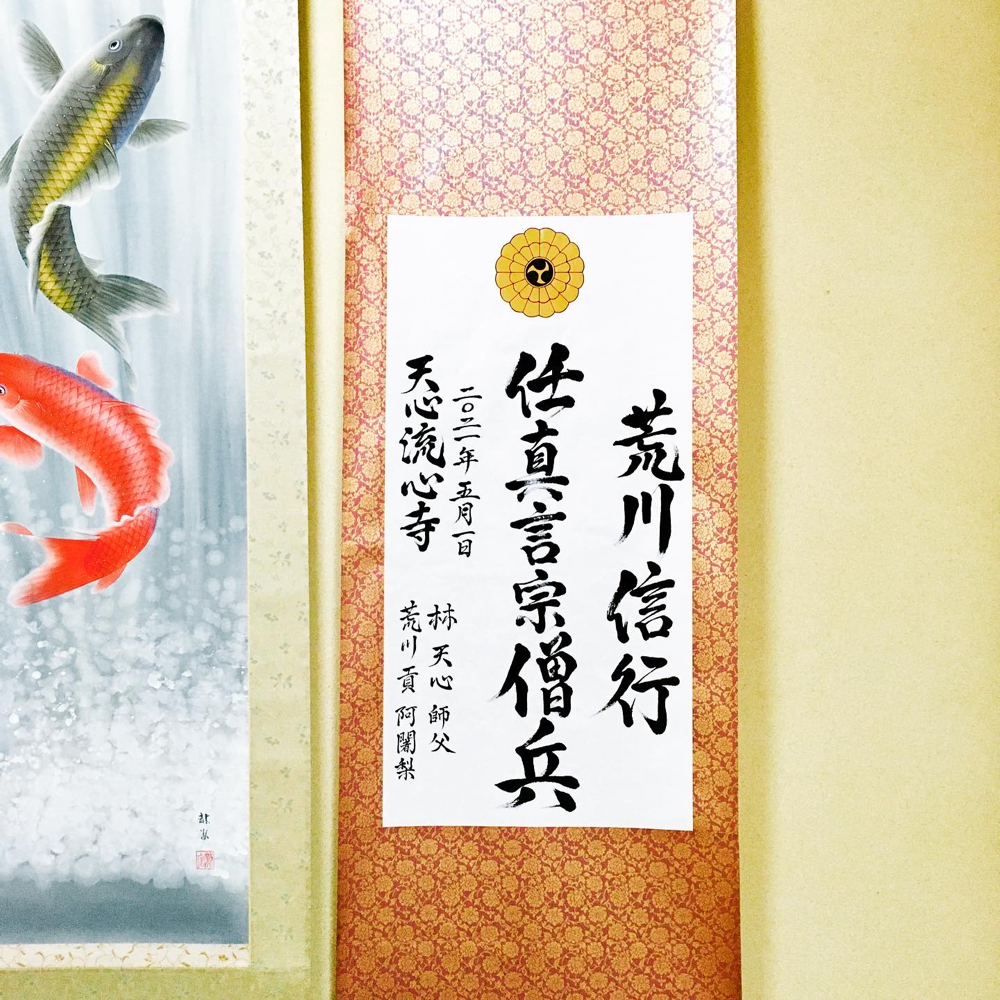 荒川信行
任真言宗僧兵
二〇二一年五月一日
天心流心寺
林天心師父
荒川貢阿闍梨